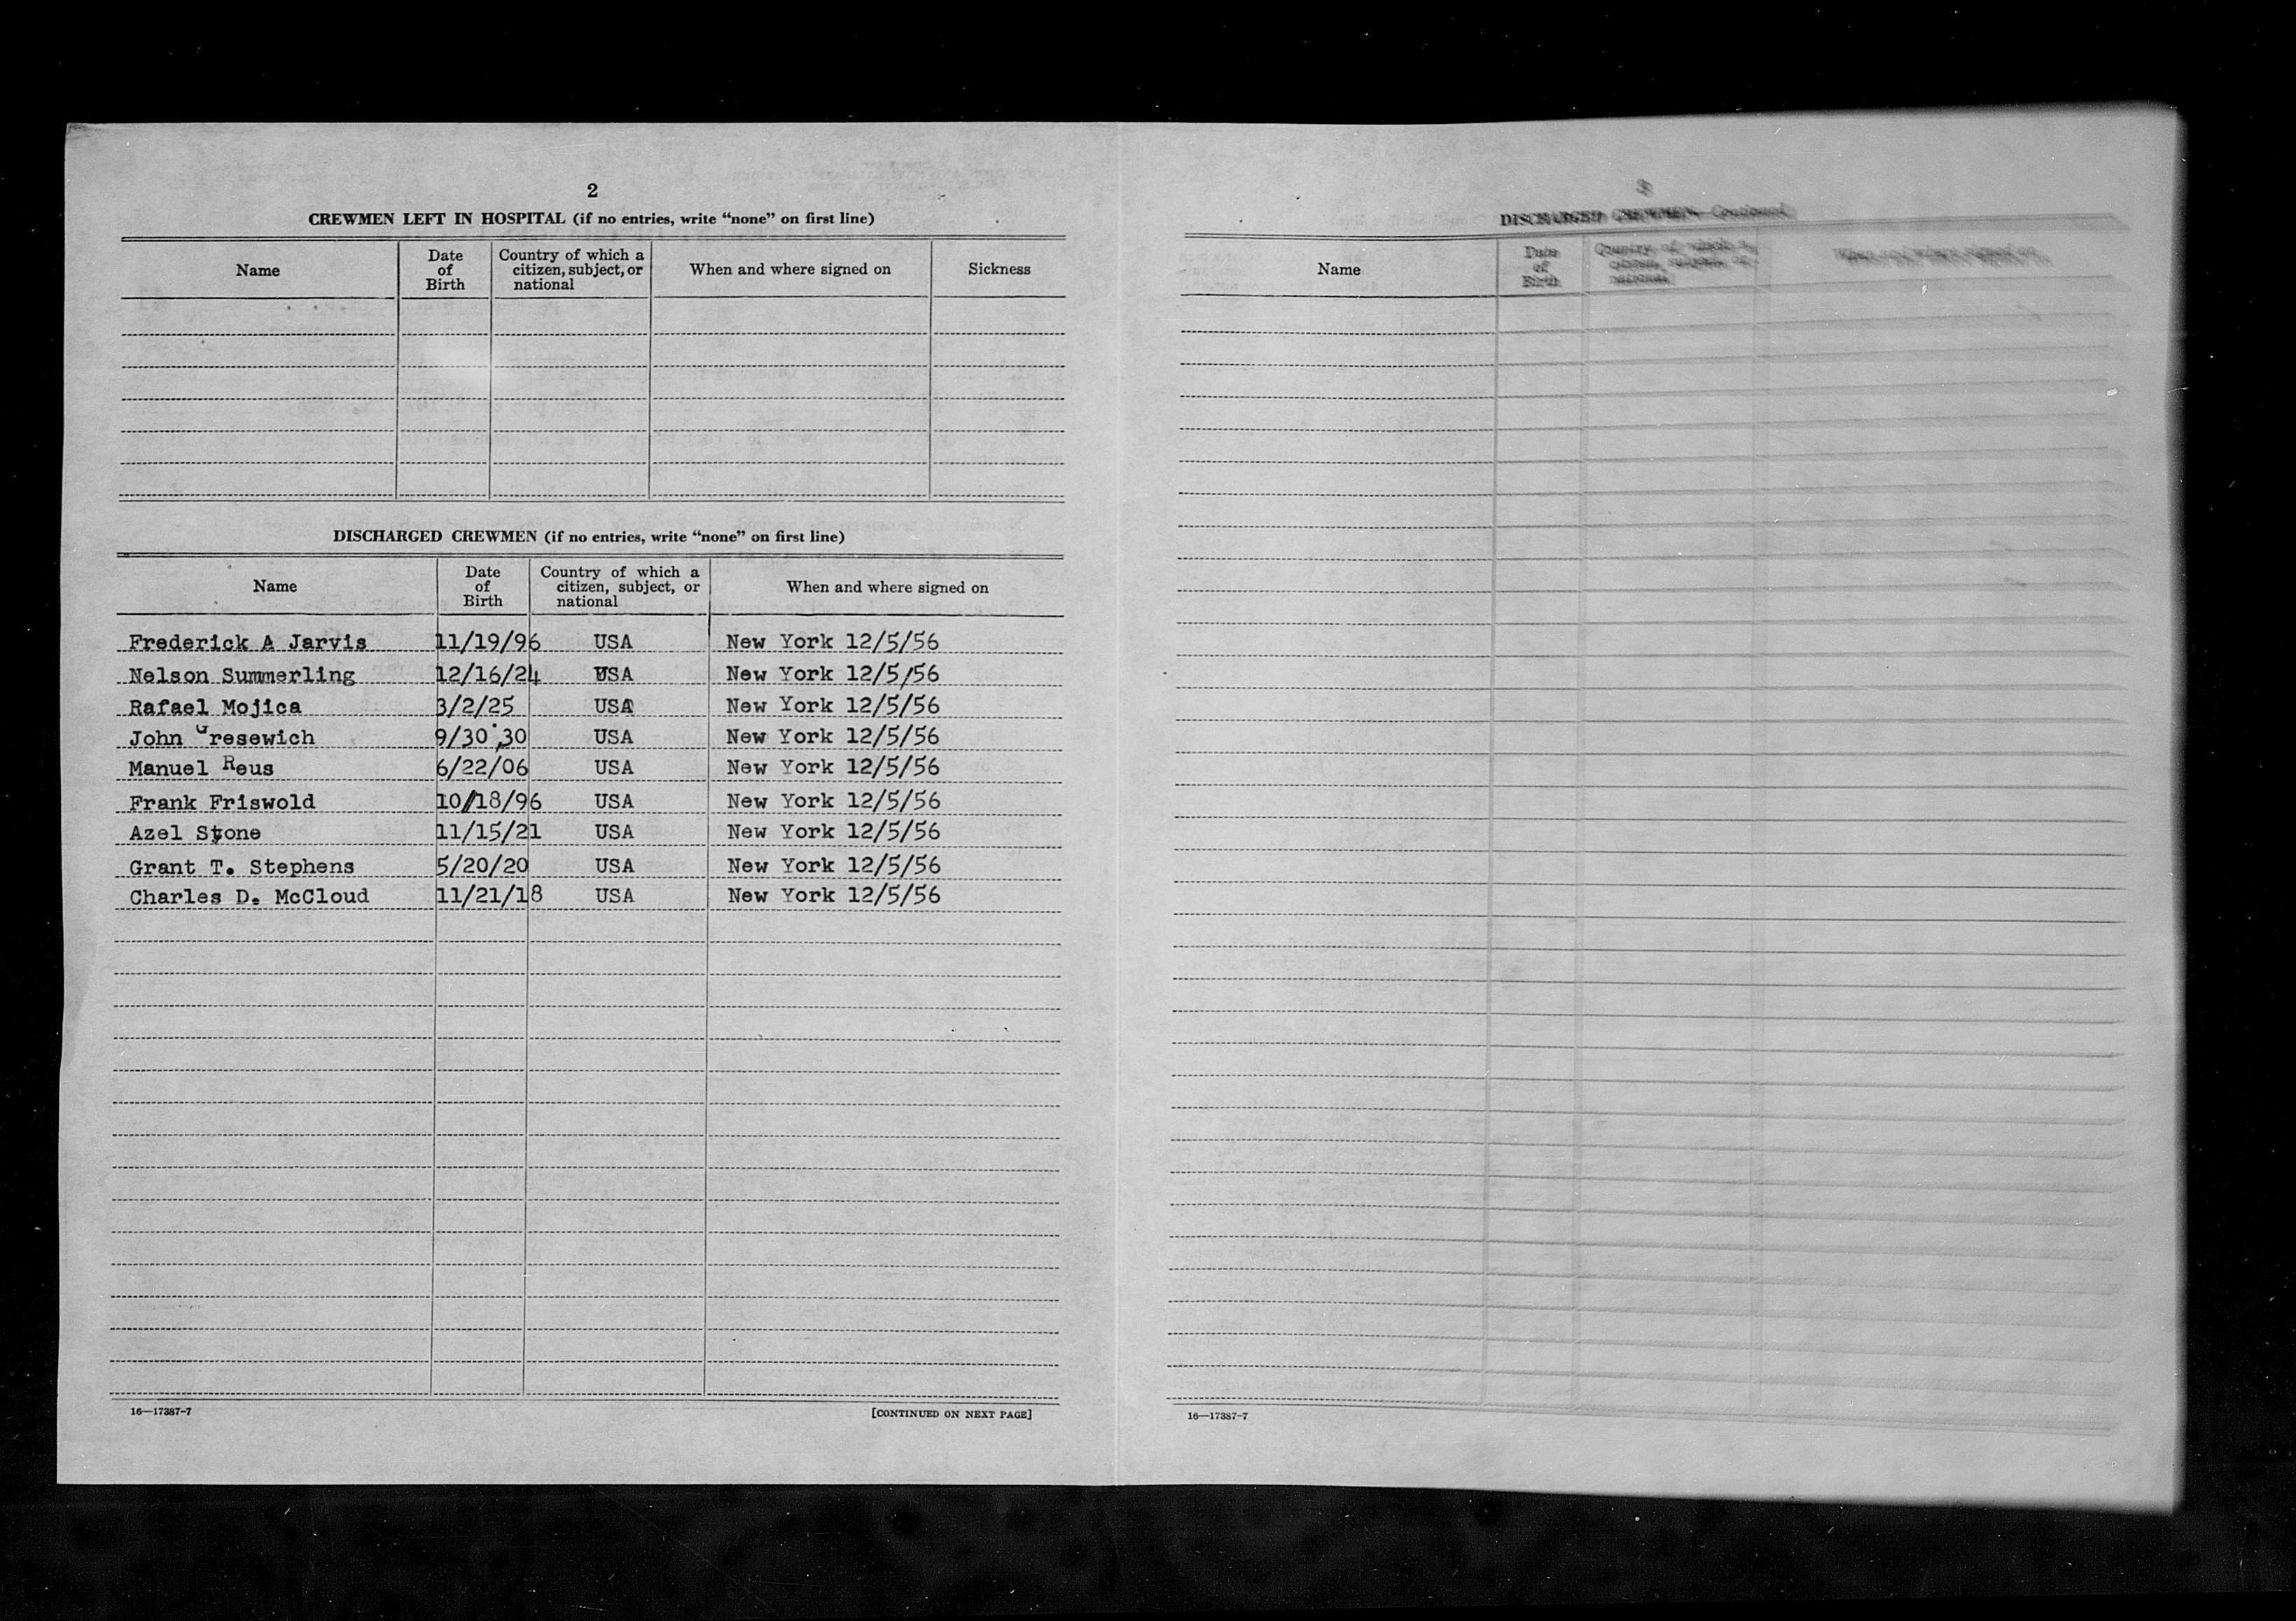 2
CREWMEN LEFT IN HOSPITAL (if no entries, write “none” on first line)
Name
Date of Birth
Country of which a citizen, subject, or national
When and where signed on
Sickness
DISCHARGED CREWMEN (if no entries, write “none” on first line)
Name
Date of Birth
Country of which a citizen, subject, or national
When and where signed on
Frederick A Jarvis 11/19/96 USA New York 12/5/56
Nelson Summerling 12/16/24 USA New York 12/5/56
Rafael Mojica 3/2/25 USA New York 12/5/56
John Gresewich 9/30/30 USA New York 12/5/56
Manuel Reus 6/22/06 USA New York 12/5/56
Frank Friswold 10/18/96 USA New York 12/5/56
Azel Stone 11/15/21 USA New York 12/5/56
Grant T. Stephens 5/20/20 USA New York 12/5/56
Charles D. McCloud 11/21/18 USA New York 12/5/56
16—17387-7
[CONTINUED ON NEXT PAGE]
3
DISCHARGED CREWMEN—Continued
Name
Date of Birth
Country of which a citizen, subject, or national
When and where signed on
16—17387-7